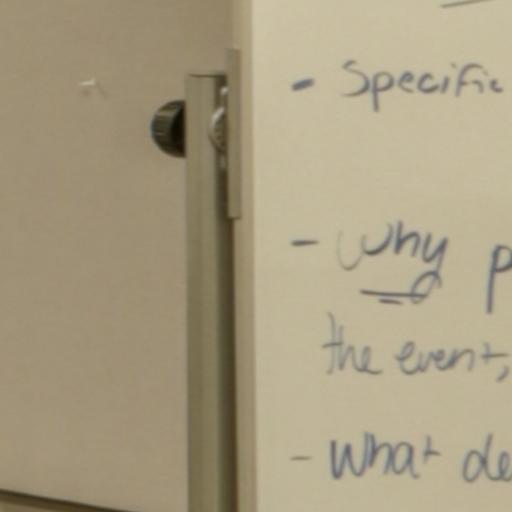 - Specific
- Why p
the event,
- What de